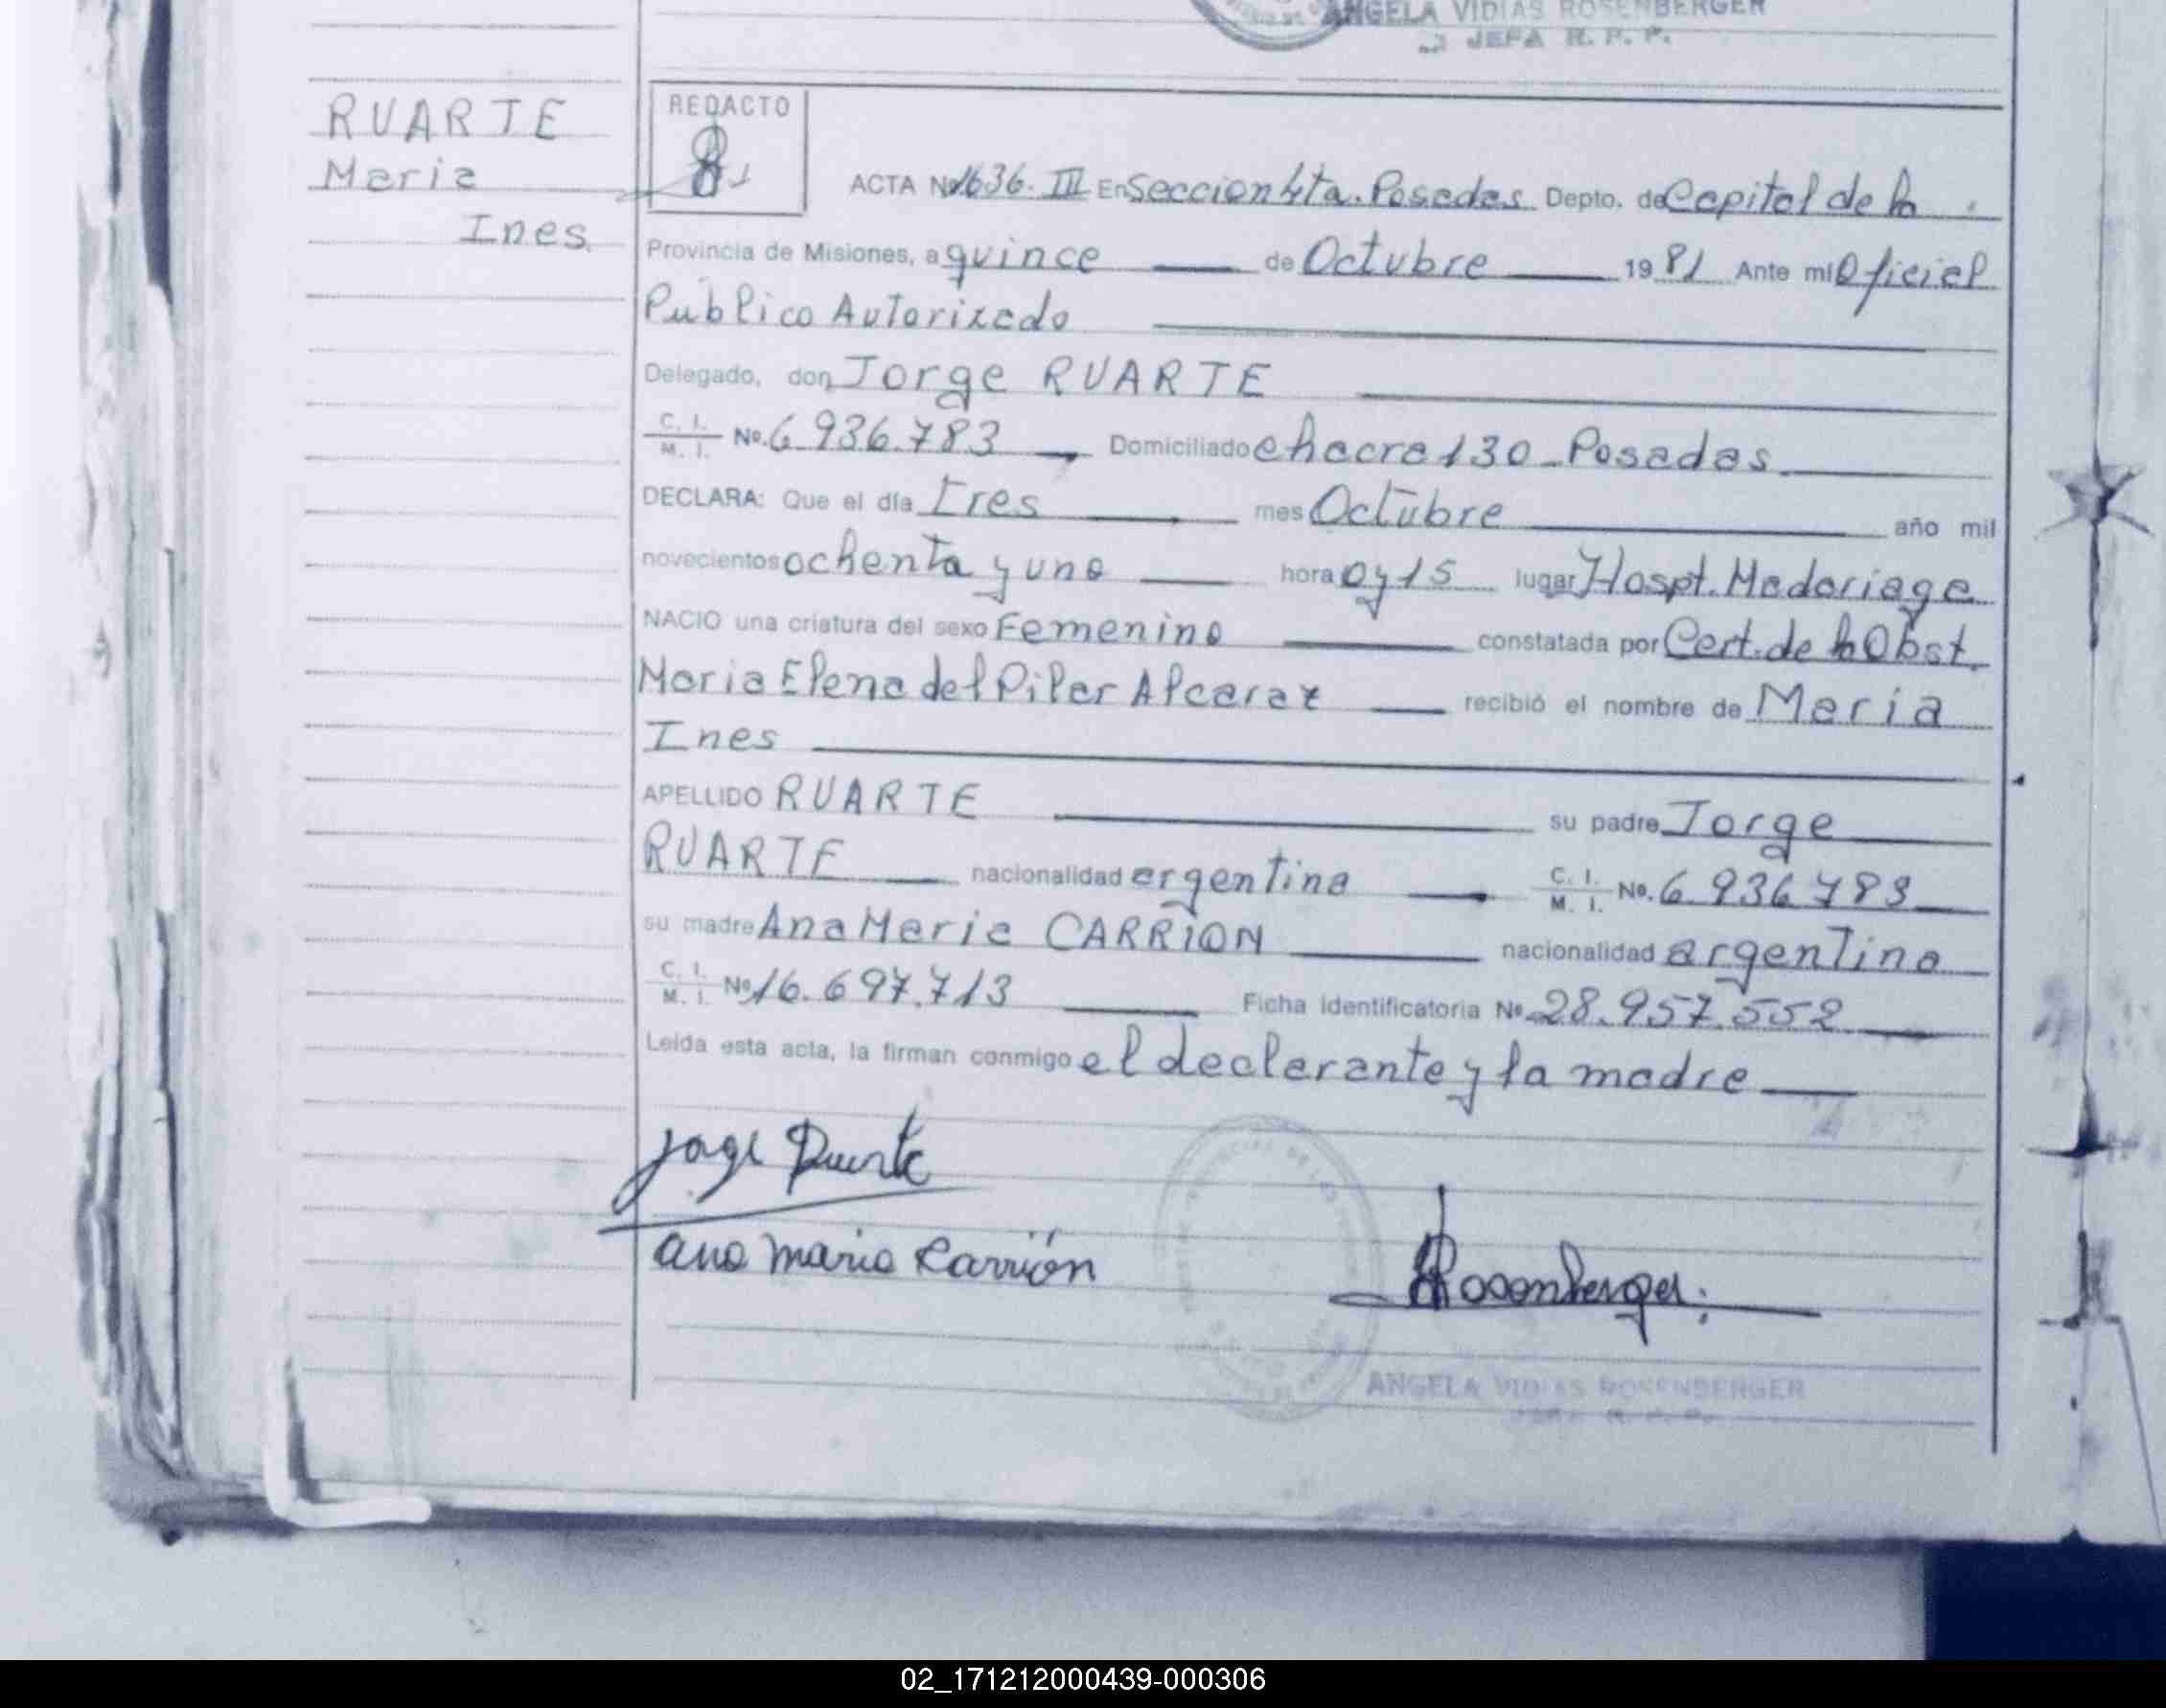 ANGELA VIDIAS ROSENBERGER
JEFA R. P. P.
RUARTE
Maria
Ines
REDACTO
ACTA Nº 1636. III En Seccion 4ta. Posadas Depto. de Capital de la
Provincia de Misiones, a quince de Octubre 19 81 Ante mi Oficial
Publico Autorizado
Delegado, don Jorge RUARTE
C. I.
M. I. Nº. 6.936.783 Domiciliado chacra 130 - Posadas
DECLARA: Que el día tres mes Octubre año mil
novecientos ochenta y uno hora 0 y 15 lugar Hospt. Madariaga
NACIO una criatura del sexo Femenino constatada por Cert. de la Obst.
Maria Elena del Pilar Alcaraz recibió el nombre de Maria
Ines
APELLIDO RUARTE su padre Jorge
RUARTE nacionalidad argentina C. I.
M. I. Nº. 6.936.783
su madre Ana Maria CARRION nacionalidad argentina
C. I.
M. I. Nº 16.697.713 Ficha Identificatoria Nº 28.957.552
Leída esta acta, la firman conmigo el declarante y la madre
Jorge Ruarte
Ana Maria Carrión
Rosenberger
ANGELA VIDIAS ROSENBERGER
JEFA R. P. P.
02_171212000439-000306